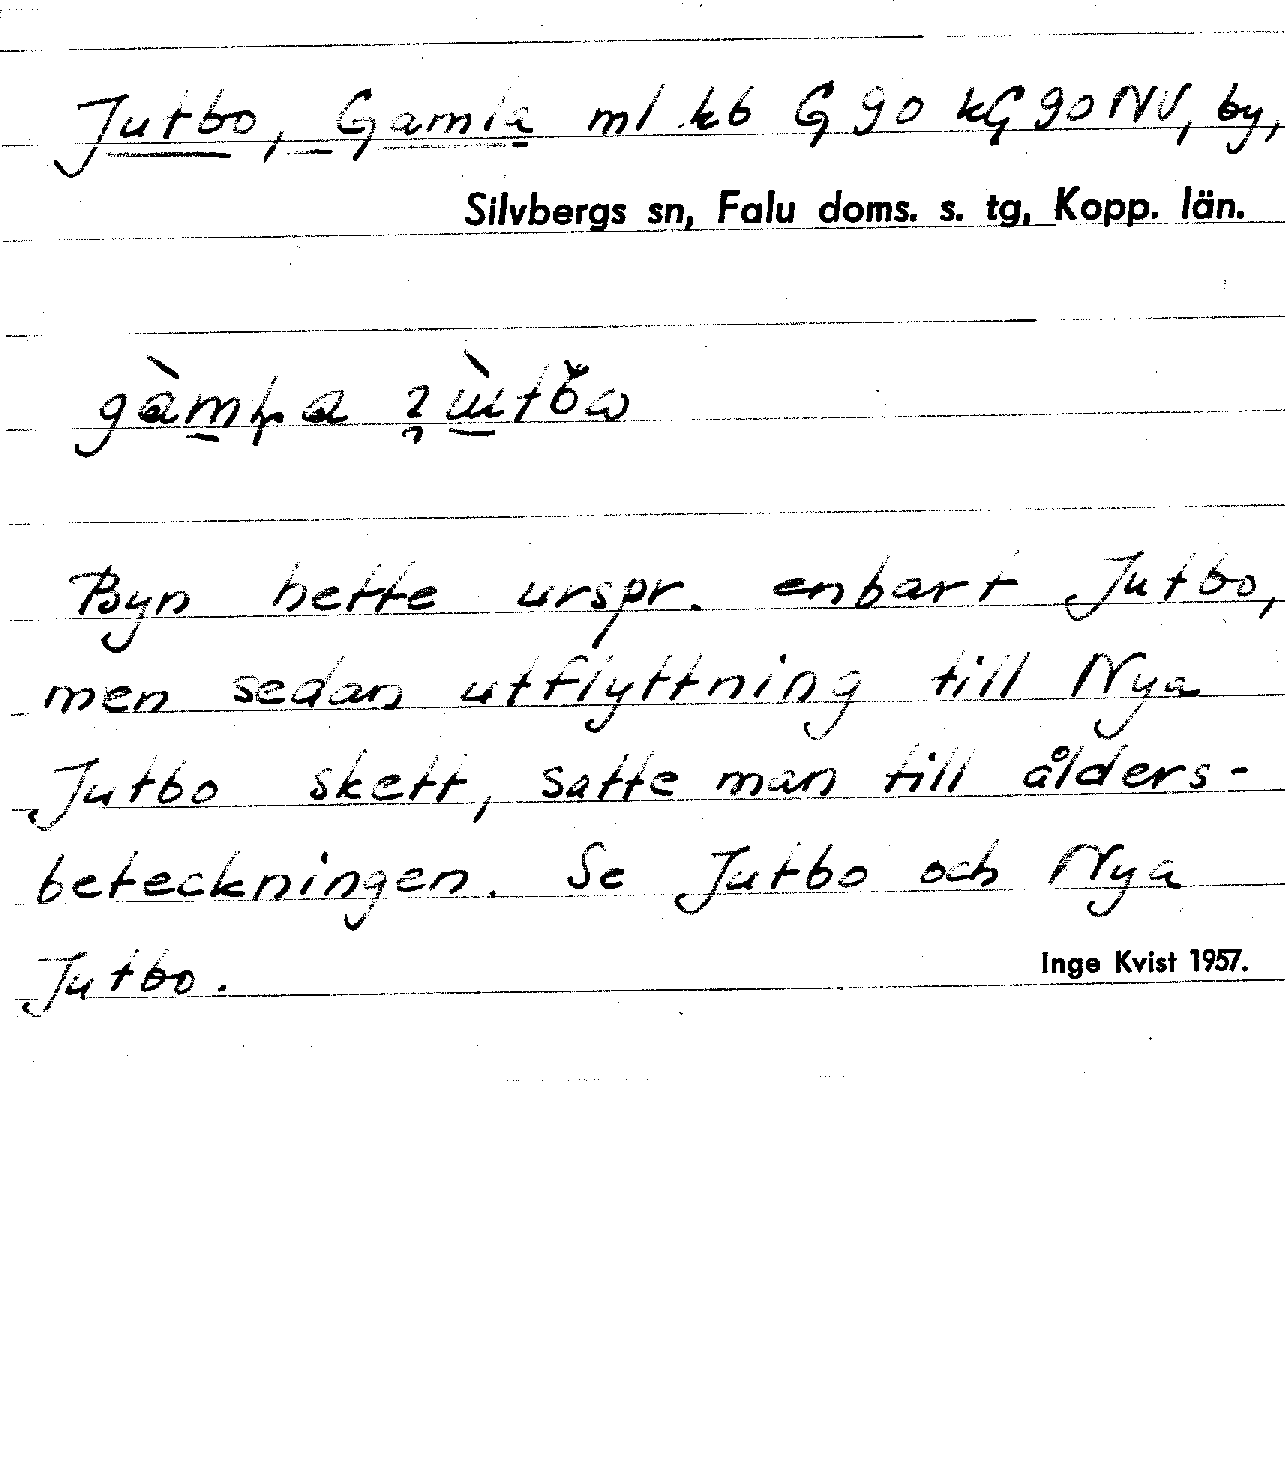 Jutbo, Gamla ml kb G 90 kG 90 NV, by,
Silvbergs sn, Falu doms. s. tg, Kopp. län.
Byn hette urspr. enbart Jutbo,
men sedan utflyttning till Nya
Jutbo skett, satte man till ålders-
beteckningen. Se Jutbo och Nya
Jutbo.
Inge Kvist 1957.